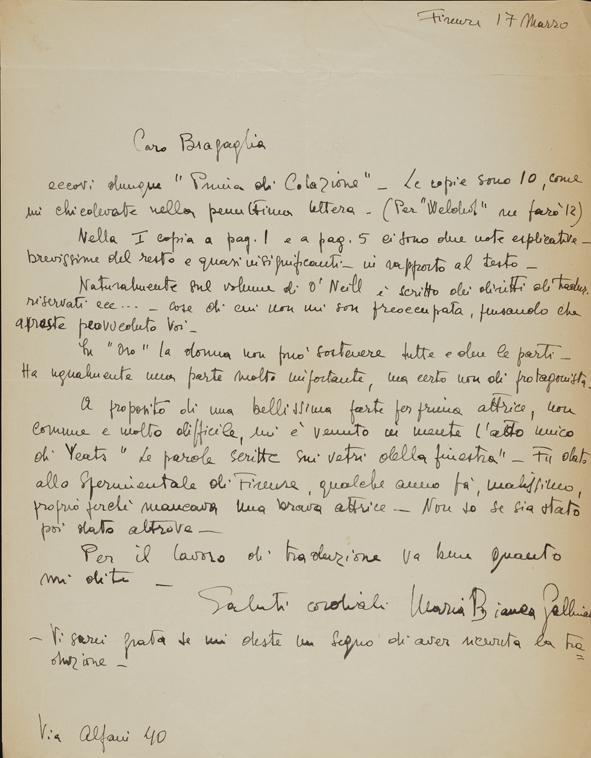 Firenze 17 Marzo
Caro Bragaglia
eccovi dunque "Prima di Colazione" - Le copie sono 10, come
mi chiedevate nella penultima lettera. - (Per "Welded" ne farò 12)
Nella I copia a pag. 1 e a pag. 5 ci sono due note esplicative -
brevissime del resto e quasi insignificanti - in rapporto al testo -
Naturalmente sul volume di O'Neill è scritto dei diritti di traduz.
riservati ecc... - cose di cui non mi son preoccupata, pensando che
avreste provveduto Voi -
In "Oro" la donna non può sostenere tutte e due le parti -
Ha ugualmente una parte molto importante, ma certo non di protagonista -
A proposito di una bellissima parte per prima attrice, non
comune e molto difficile, mi è venuto in mente l'atto unico
di Yeats "Le parole scritte sui vetri della finestra" - Fu dato
allo Sperimentale di Firenze, qualche anno fà, malissimo,
proprio perchè mancava una brava attrice - Non so se sia stato
poi dato altrove -
Per il lavoro di traduzione va bene quanto
mi dite -
Saluti cordiali Maria Bianca Gallinaro
- Vi sarei grata se mi deste un segno di aver ricevuta la tra=
duzione -
Via Alfani 40